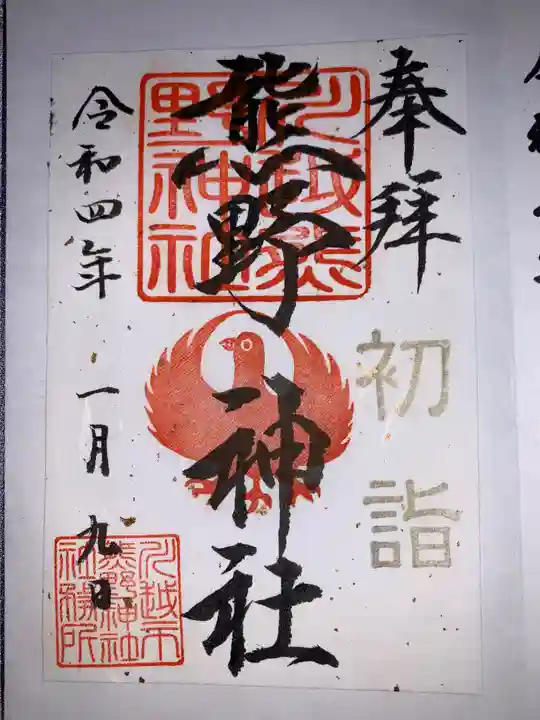 奉拝
初詣
熊野神社
川越熊野神社
令和四年
一月九日
川越市
熊野神社
社務所